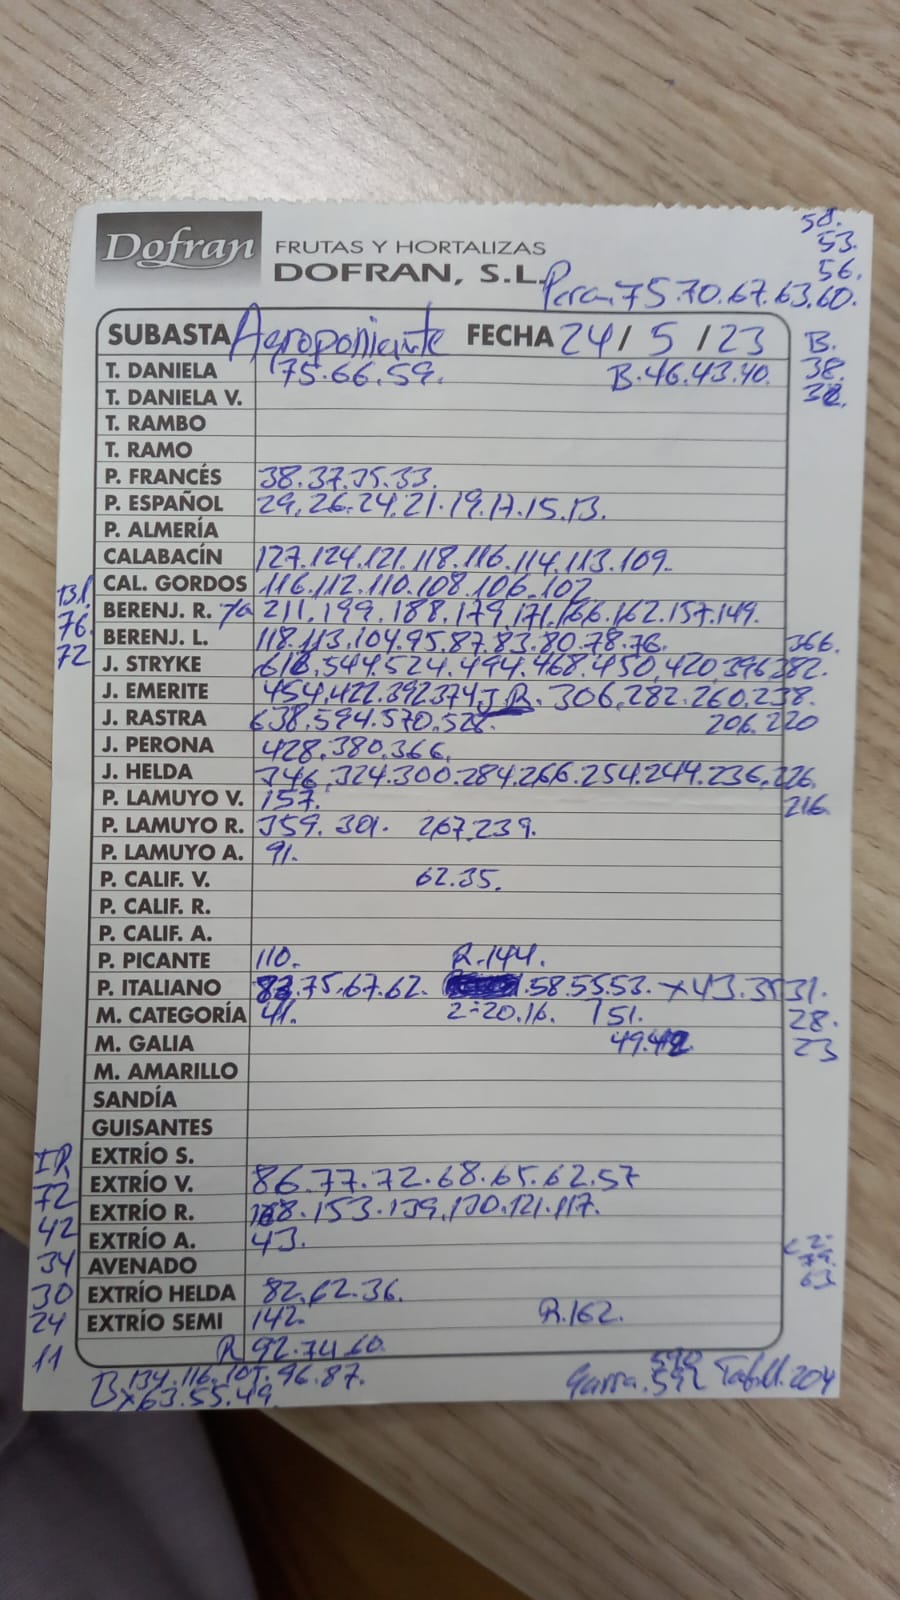 Dofran FRUTAS Y HORTALIZAS
DOFRAN, S.L.
58.
53.
56.
Pera. 75.70.67.63.60.
SUBASTA Agroponiente FECHA 24/5/23
B.
38.
T. DANIELA 75.66.59. B.46.43.40.
T. DANIELA V.
T. RAMBO
T. RAMO
P. FRANCÉS 38.37.35.33.
P. ESPAÑOL 29.26.24.21.19.17.15.13.
P. ALMERÍA
CALABACÍN 127.124.121.118.116.114.113.109.
CAL. GORDOS 116.112.110.108.106.102
BERENJ. R. 211.199.188.179.171.166.162.157.149.
76.
BERENJ. L. 118.113.104.95.87.83.80.78.76. 366.
72
J. STRYKE 544.524.494.468.450.420.396.382.
J. EMERITE 454.422.392.374 J.R. 306.282.260.238.
J. RASTRA 638.594.570.528. 206.220
J. PERONA 428.380.366.
J. HELDA 346.324.300.284.266.254.244.236.226.
P. LAMUYO V. 157. 216.
P. LAMUYO R. 359.301. 267.239.
P. LAMUYO A. 91.
P. CALIF. V. 62.35.
P. CALIF. R.
P. CALIF. A.
P. PICANTE 110. R.144.
P. ITALIANO 75.67.62. .58.55.53. x43.35 31.
M. CATEGORÍA 41. 2=20.16. 151. 28.
M. GALIA 49. 23
M. AMARILLO
SANDÍA
GUISANTES
EXTRÍO S.
IR
EXTRÍO V. 86.77.72.68.65.62.57
72
EXTRÍO R. 153.139.130.121.117.
42
EXTRÍO A. 43.
34
AVENADO
63
30
EXTRÍO HELDA 82.62.36.
24
EXTRÍO SEMI 142. R.162.
11
R 92.74.60.
B 134.116.105.96.87.
x63.55.49.
Garra. 592 204